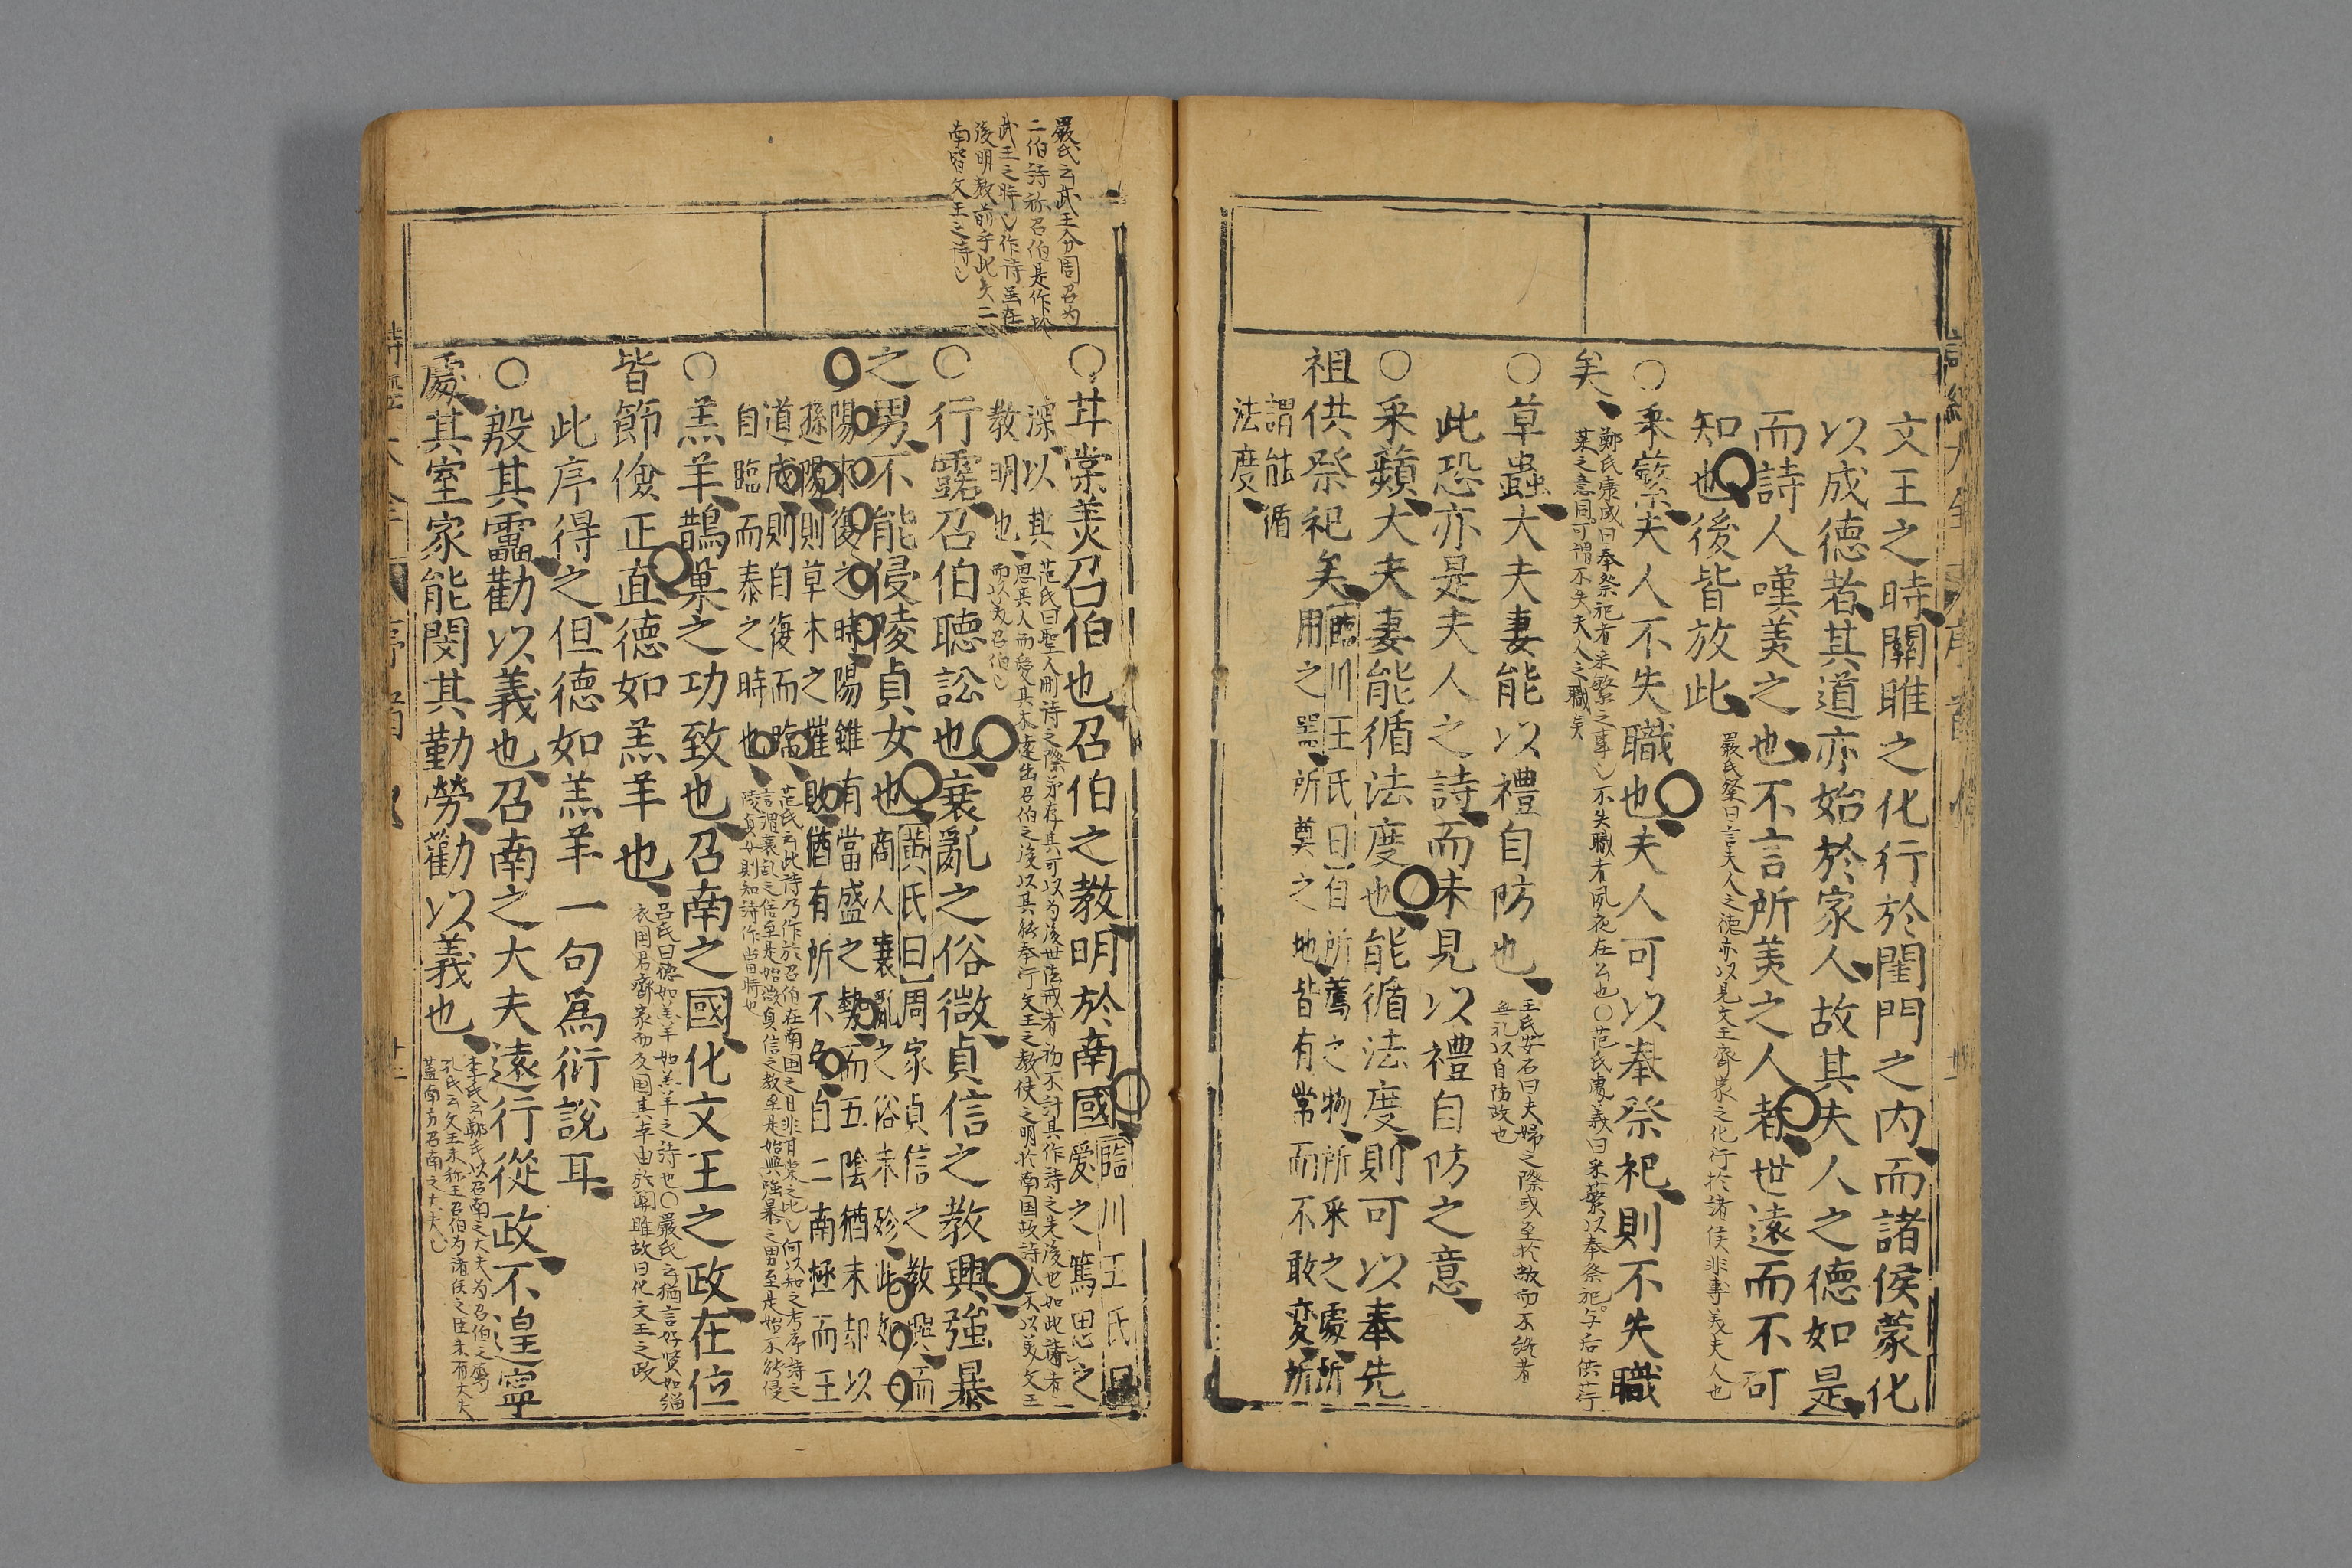 文王之時關雎之化行於閨門之內而諸侯蒙化
以成德者其道亦始於家人故其夫人之德如是
而詩人嘆美之也不言所美之人者世遠而不可
知也後皆放此
嚴氏粲曰言夫人之德亦以見文王齊家之化行於諸侯非專美夫人也
○采蘩夫人不失職也夫人可以奉祭祀則不失職
矣
鄭氏康成曰奉祭祀者采蘩之事也不失職者夙夜在公也○范氏處義曰采蘩以奉祭祀與后供荇
菜之意同可謂不失夫人之職矣
○草蟲大夫妻能以禮自防也
王氏安石曰夫婦之際或至於敝而不訴者
無礼以自防故也
此恐亦是夫人之詩而未見以禮自防之意
○采蘋大夫妻能循法度也能循法度則可以奉先
祖供祭祀矣
臨川王氏曰自所薦之物所采之處所
用之器所奠之地皆有常而不敢変所
謂能循
法度
嚴氏云武王分周召为
二伯詩称召伯是作於
武王之時也作詩虽在
後明教前乎此矣二
南皆文王之詩也
○甘棠美召伯也召伯之教明於南國
臨川王氏曰
愛之篤思之
深以其
教明也
范氏曰聖人刪詩之際亦存其可以为後世法戒者初不討其作詩之先後也如此詩者
思其人而愛其木遠出召伯之後以其能奉行文王之教使之明於南国故詩人不以美文王
而以美召伯也
○行露召伯聽訟也衰亂之俗微貞信之教興強暴
之男不能侵陵貞女也
黃氏曰周家貞信之教興而
商人衰亂之俗未殄此如
○陽來復之時陽雖有當盛之勢而五陰猶未却以
孫陽則草木之摧敗猶有所不免自二南極而王
道成則自復而臨
自臨而泰之時也
范氏云此詩乃作於召伯在南国之日非甘棠之比也何以知之考序詩之
言謂衰乱之俗至是始微貞信之教至是始興強暴之男至是始不能侵
陵貞女則知詩作當時也
○羔羊鵲巢之功致也召南之國化文王之政在位
皆節儉正直德如羔羊也
呂氏曰德如羔羊如羔羊之詩也○嚴氏云猶言好賢如緇
衣国君齊家而及国其本由於關雎故曰化文王之政
此序得之但德如羔羊一句爲衍說耳
○殷其靁勸以義也召南之大夫遠行從政不遑寧
處其室家能閔其勤勞勸以義也
李氏云鄭氏以召南之大夫为召伯之属
孔氏云文王未称王召伯为諸侯之臣未有大夫
蓋南方召南之大夫也